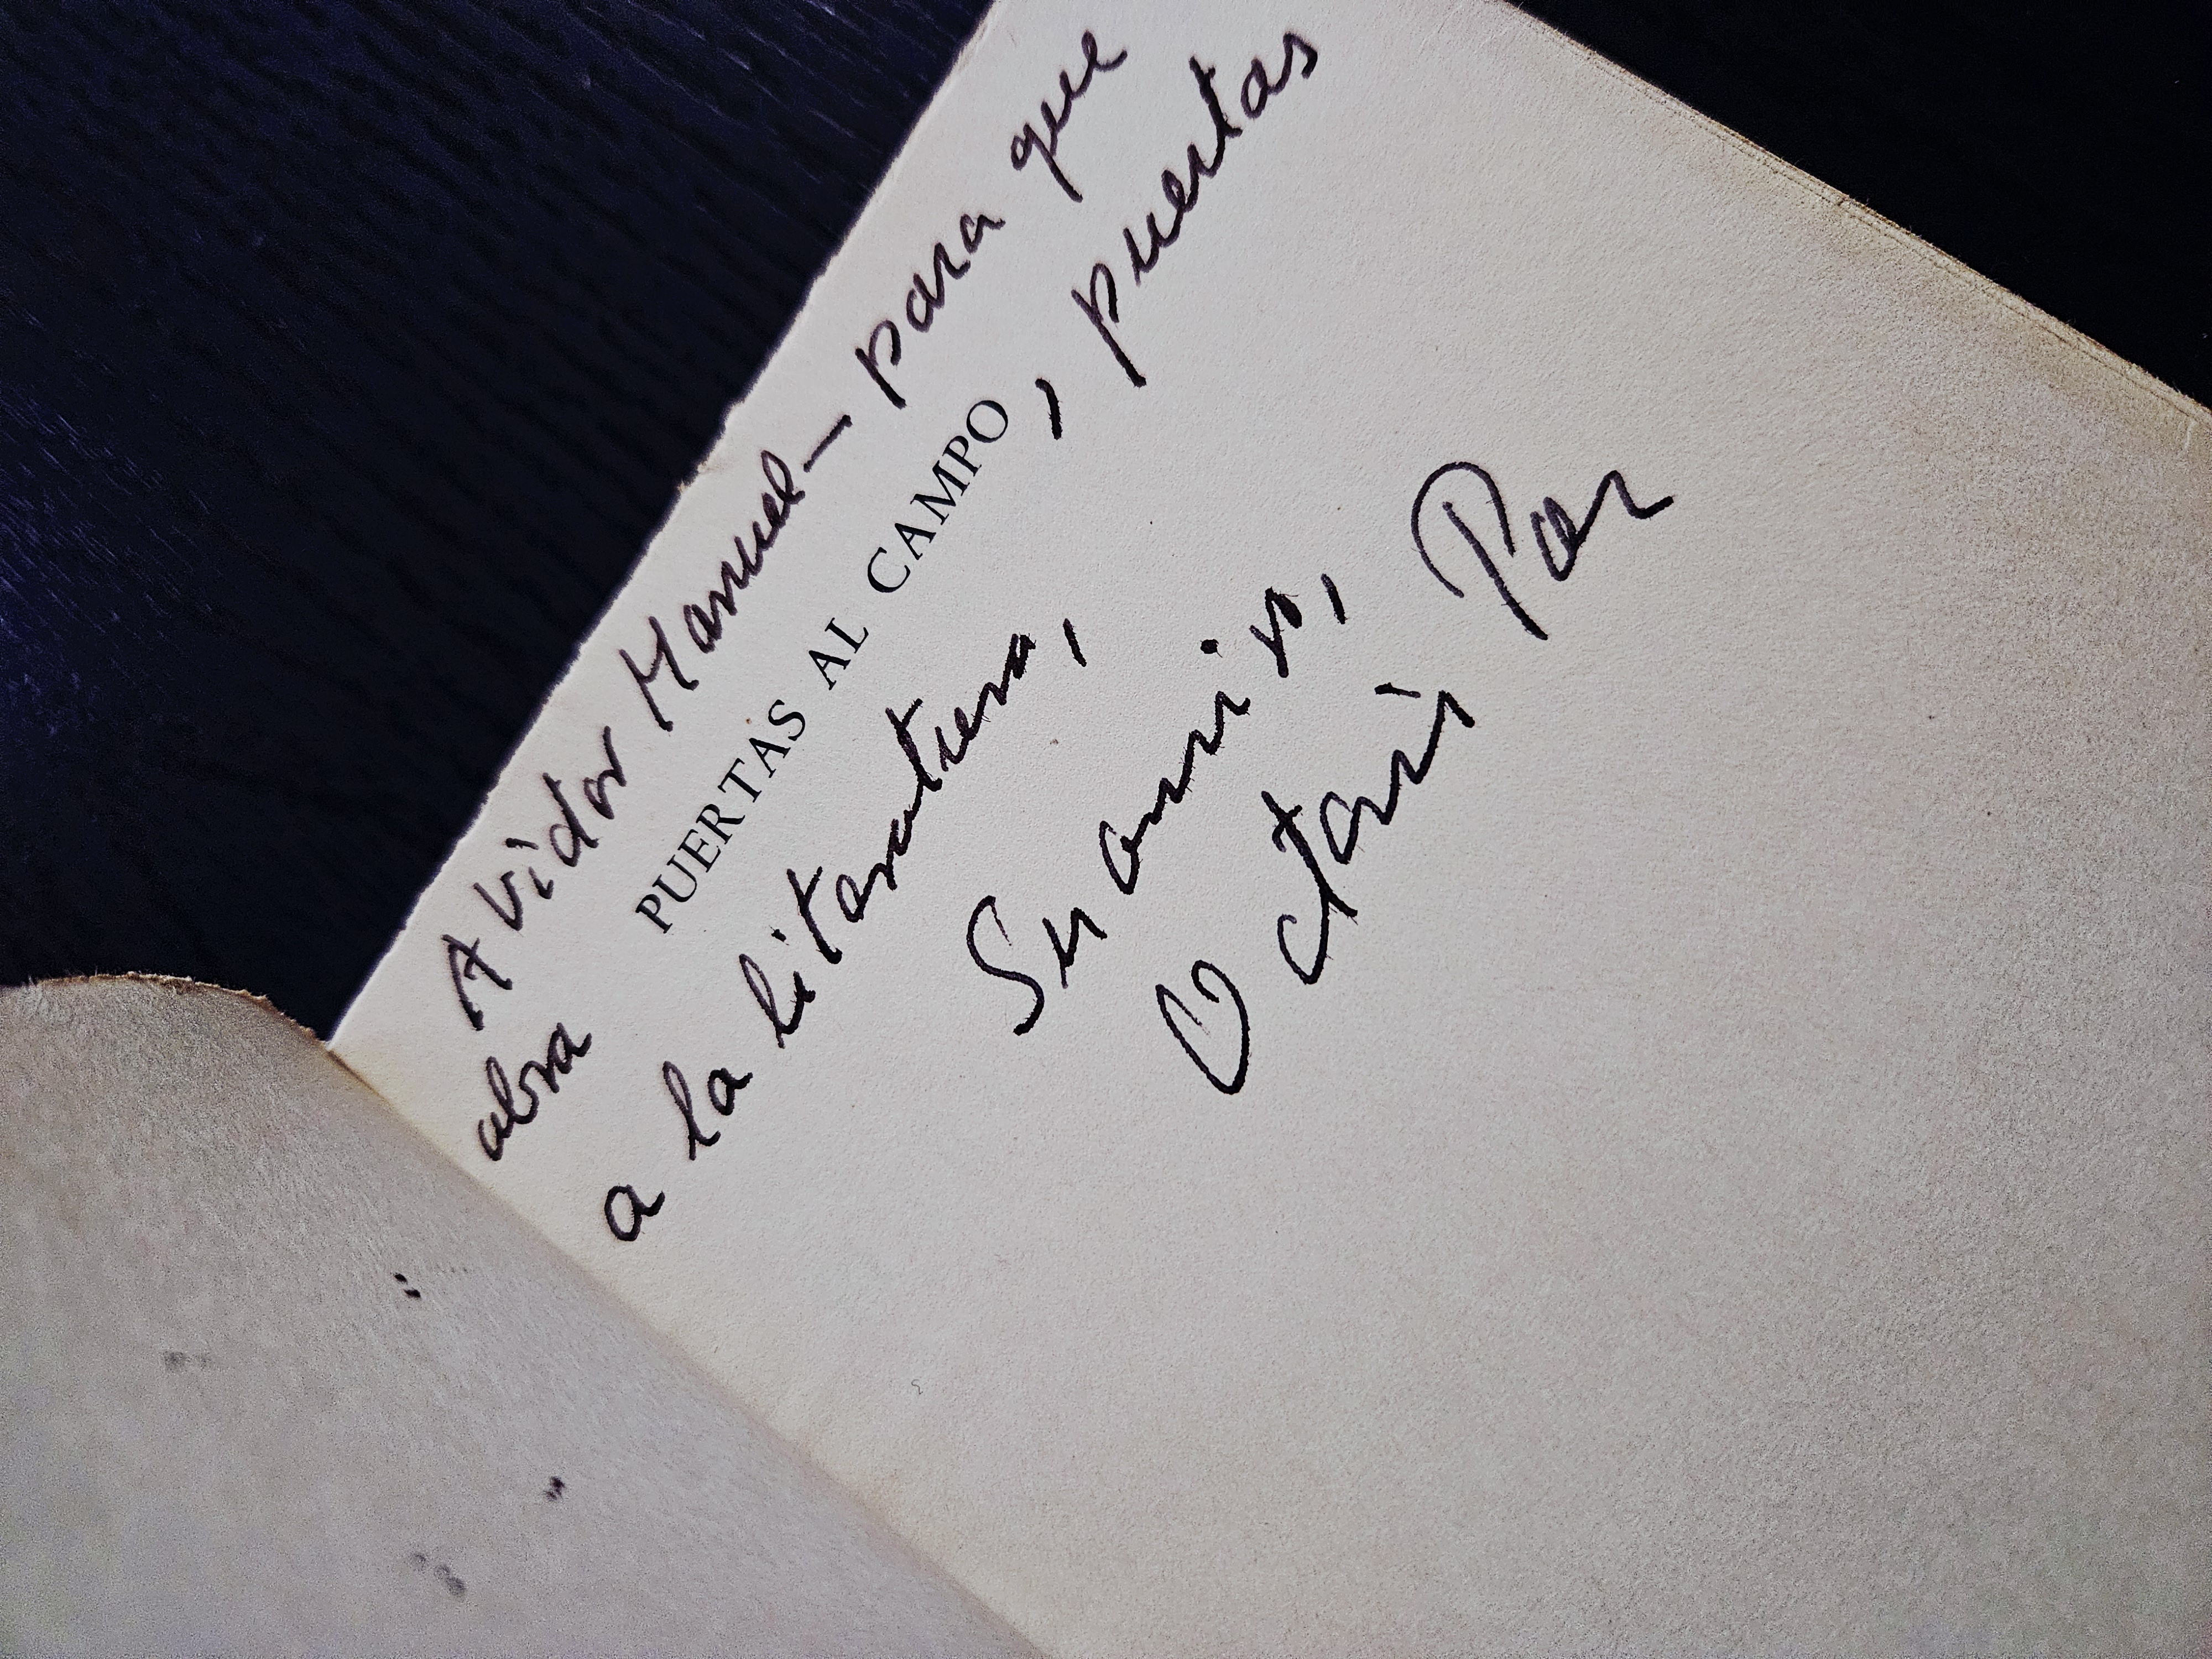 A Victor Manuel — para que
abra PUERTAS AL CAMPO, puertas
a la literatura,
Su amigo,
Octavio Paz